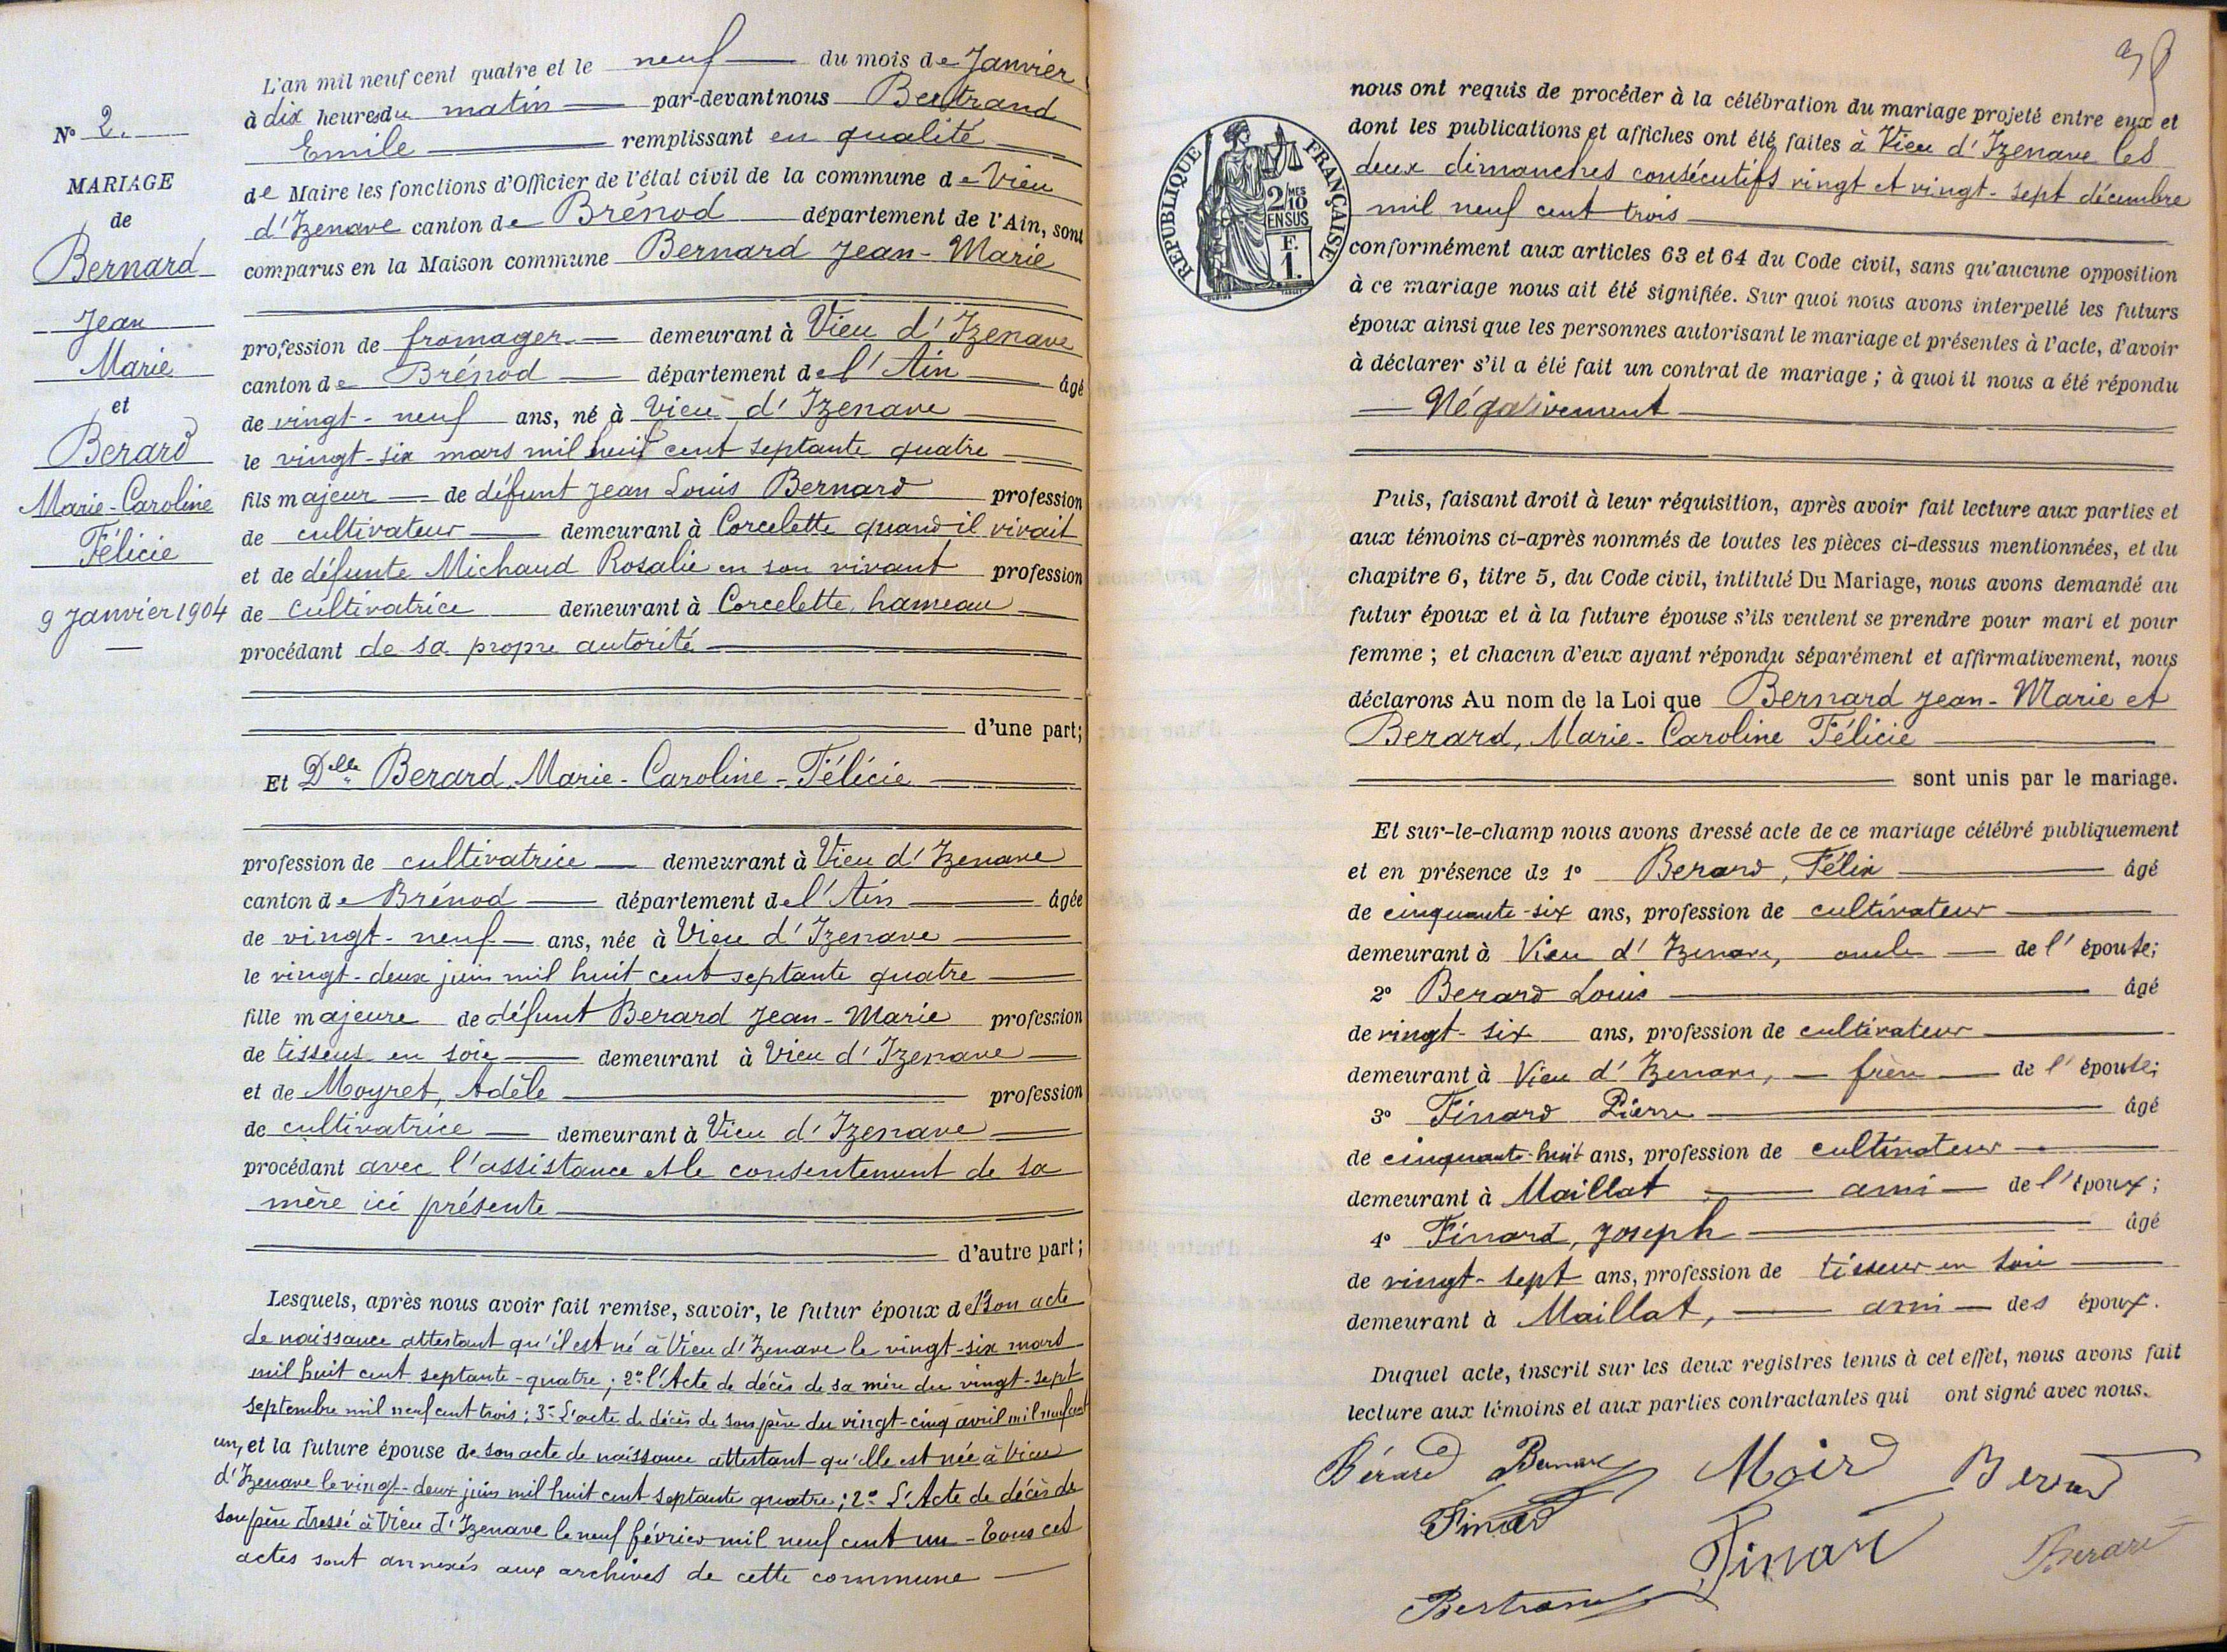 N° 2.
MARIAGE
de
Bernard
Jean
Marie
et
Berard
Marie-Caroline
Félicie
9 Janvier 1904
L'an mil neuf cent quatre et le neuf du mois de Janvier
à dix heures du matin par-devant nous Bertrand
Emile remplissant en qualité
de Maire les fonctions d'Officier de l'état civil de la commune de Vieu
d'Izenave canton de Brénod département de l'Ain, sont
comparus en la Maison commune Bernard Jean-Marie
profession de fromager demeurant à Vieu d'Izenave
canton de Brénod département de l'Ain âgé
de vingt-neuf ans, né à Vieu d'Izenave
le vingt-six mars mil huit cent septante quatre
fils majeur de défunt Jean Louis Bernard profession
de cultivateur demeurant à Corcelette quand il vivait
et de défunte Michaud Rosalie en son vivant profession
de cultivatrice demeurant à Corcelette, hameau
procédant de sa propre autorité
d'une part;
Et Delle Berard, Marie-Caroline-Félicie
profession de cultivatrice demeurant à Vieu d'Izenave
canton de Brénod département de l'Ain âgée
de vingt-neuf ans, née à Vieu d'Izenave
le vingt-deux juin mil huit cent septante quatre
fille majeure de défunt Berard Jean-Marie profession
de tisseur en soie demeurant à Vieu d'Izenave
et de Moyret, Adèle profession
de cultivatrice demeurant à Vieu d'Izenave
procédant avec l'assistance et le consentement de sa
mère ici présente
d'autre part;
Lesquels, après nous avoir fait remise, savoir, le futur époux de son acte
de naissance attestant qu'il est né à Vieu d'Izenave le vingt-six mars
mil huit cent septante-quatre; 2° l'Acte de décès de sa mère du vingt-sept
septembre mil neuf cent trois; 3° L'acte de décès de son père du vingt-cinq avril mil neuf cent
un, et la future épouse de son acte de naissance attestant qu'elle est née à Vieu
d'Izenave le vingt-deux juin mil huit cent septante quatre; 2° L'Acte de décès de
son père dressé à Vieu d'Izenave le neuf février mil neuf cent un - Tous ces
actes sont annexés aux archives de cette commune
REPUBLIQUE FRANÇAISE
2 MES
10
EN SUS
F.
1.
nous ont requis de procéder à la célébration du mariage projeté entre eux et
dont les publications et affiches ont été faites à Vieu d'Izenave les
deux dimanches consécutifs vingt et vingt-sept décembre
mil neuf cent trois
conformément aux articles 63 et 64 du Code civil, sans qu'aucune opposition
à ce mariage nous ait été signifiée. Sur quoi nous avons interpellé les futurs
époux ainsi que les personnes autorisant le mariage et présentes à l'acte, d'avoir
à déclarer s'il a été fait un contrat de mariage; à quoi il nous a été répondu
Négativement
Puis, faisant droit à leur réquisition, après avoir fait lecture aux parties et
aux témoins ci-après nommés de toutes les pièces ci-dessus mentionnées, et du
chapitre 6, titre 5, du Code civil, intitulé Du Mariage, nous avons demandé au
futur époux et à la future épouse s'ils veulent se prendre pour mari et pour
femme; et chacun d'eux ayant répondu séparément et affirmativement, nous
déclarons Au nom de la Loi que Bernard Jean-Marie et
Berard, Marie-Caroline Félicie
sont unis par le mariage.
Et sur-le-champ nous avons dressé acte de ce mariage célébré publiquement
et en présence de 1° Berard, Félix âgé
de cinquante-six ans, profession de cultivateur
demeurant à Vieu d'Izenave, oncle de l'épouse;
2° Berard Louis âgé
de vingt-six ans, profession de cultivateur
demeurant à Vieu d'Izenave, frère de l'épouse;
3° Finard Pierre âgé
de cinquante-huit ans, profession de cultivateur
demeurant à Maillat ami de l'époux;
4° Finard, Joseph âgé
de vingt-sept ans, profession de tisseur en soie
demeurant à Maillat, ami des époux.
Duquel acte, inscrit sur les deux registres tenus à cet effet, nous avons fait
lecture aux témoins et aux parties contractantes qui ont signé avec nous.
Bérard Bernard
Finard
Finard Berard
Bertrand